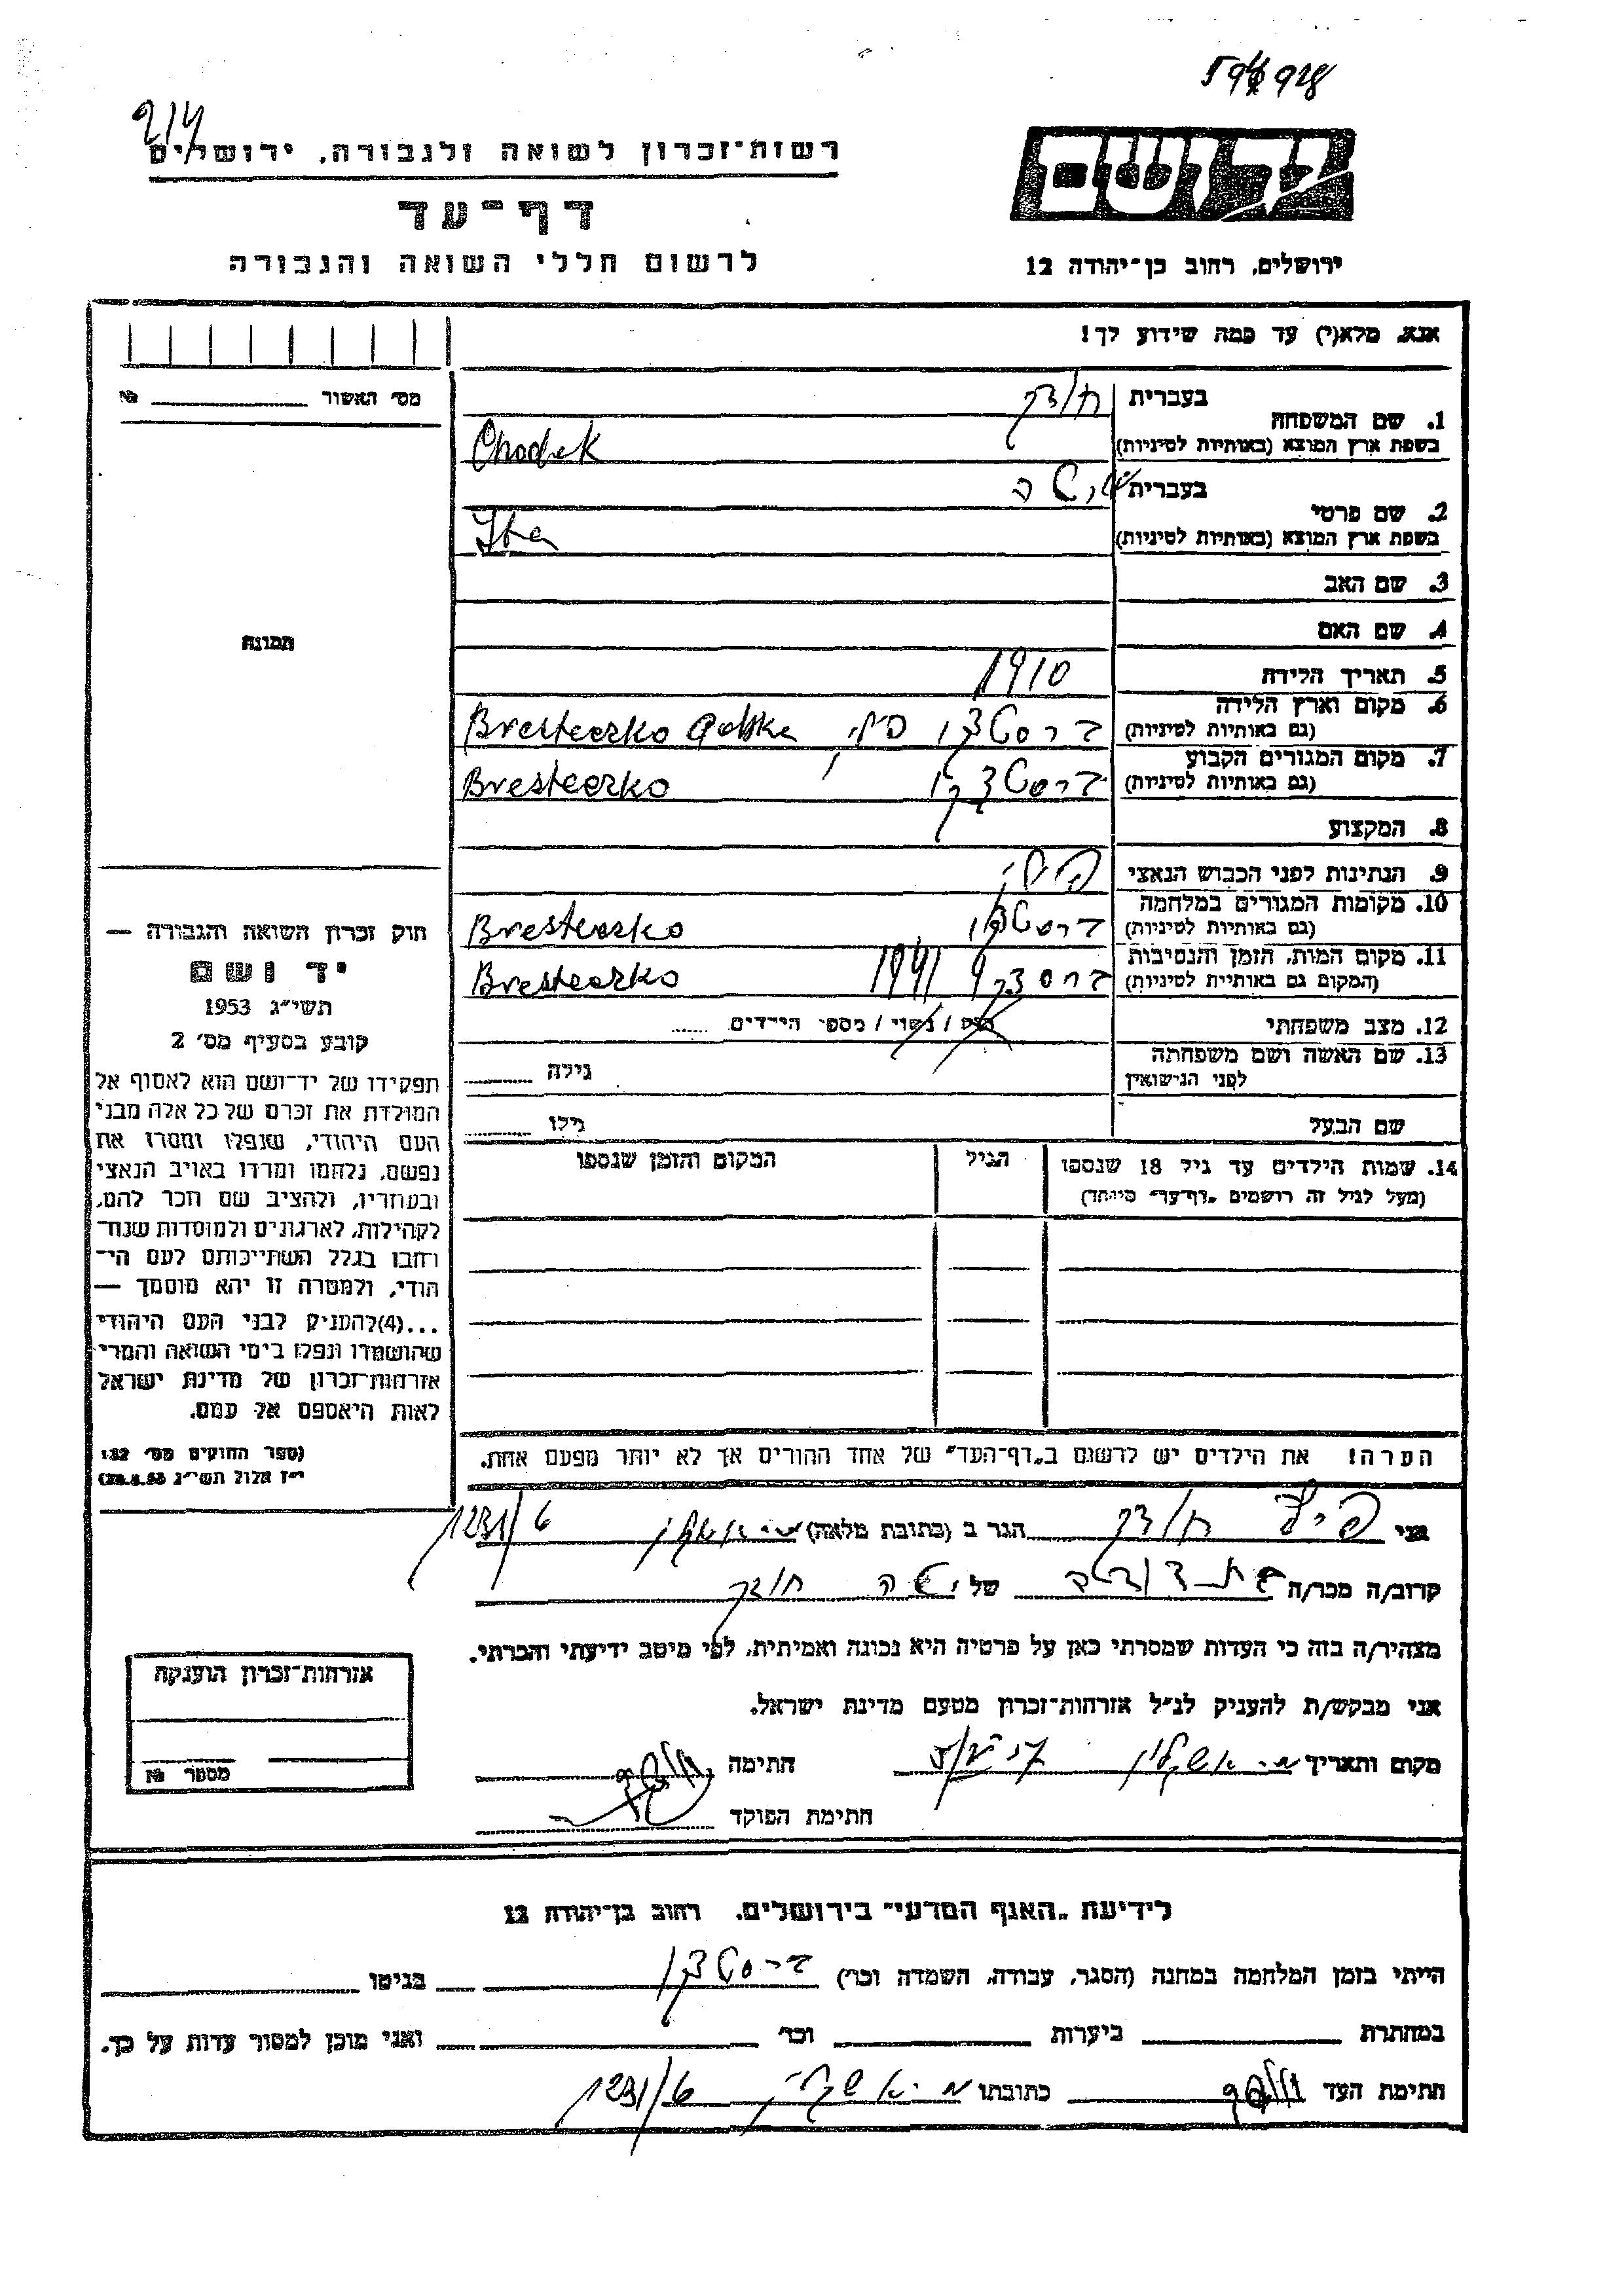 594928
214
רשות־זכרון לשואה ולגבורה, ירושלים
דף־עד
לרשום חללי השואה והגבורה
יד ושם
ירושלים, רחוב בן־יהודה 12
אנא, מלא(י) עד כמה שידוע לך!
מס׳ האשור № ________
1. שם המשפחה
בעברית חודק
בשפת ארץ המוצא (באותיות לטיניות) Chodek
2. שם פרטי
בעברית
בשפת ארץ המוצא (באותיות לטיניות)
3. שם האב
4. שם האם
תמונה
5. תאריך הלידה 1910
6. מקום וארץ הלידה
(גם באותיות לטיניות) ברסטצקו Bresteczko
7. מקום המגורים הקבוע
(גם באותיות לטיניות) ברסטצקו Bresteczko
8. המקצוע
9. הנתינות לפני הכבוש הנאצי
10. מקומות המגורים במלחמה
(גם באותיות לטיניות) ברסטצקו Bresteczko
11. מקום המות, הזמן והנסיבות
(המקום גם באותיית לטיניות) 1941 Bresteczko
12. מצב משפחתי רווק / נשוי / מספר הילדים ......
13. שם האשה ושם משפחתה
לפני הנישואין גילה ........
שם הבעל גילו ........
14. שמות הילדים עד גיל 18 שנספו הגיל המקום והזמן שנספו
(מעל לגיל זה רושמים „דף־עד״ מיוחד)
חוק זכרון השואה והגבורה —
יד ושם
תשי״ג 1953
קובע בסעיף מס׳ 2
תפקידו של יד־ושם הוא לאסוף אל
המולדת את זכרם של כל אלה מבני
העם היהודי, שנפלו ומסרו את
נפשם, נלחמו ומרדו באויב הנאצי
ובעוזריו, ולהציב שם וזכר להם,
לקהילות, לארגונים ולמוסדות שנח־
רחבו בגלל השתייכותם לעם הי־
הודי, ולמטרה זו יהא מוסמך —
...(4)להעניק לבני העם היהודי
שהושמדו ונפלו בימי השואה והמרי
אזרחות־זכרון של מדינת ישראל
לאות היאספם אל עמם.
(ספר החוקים מס׳ 132
י״ז אלול תשי״ג 28.8.53)
הערה! את הילדים יש לרשום ב„דף־העד״ של אחד ההורים אך לא יותר מפעם אחת.
אני חודק הגר ב (כתובת מלאה) 1231/6
קרוב/ה מכר/ה של חודק
מצהיר/ה בזה כי העדות שמסרתי כאן על פרטיה היא נכונה ואמיתית, לפי מיטב ידיעתי והכרתי.
אני מבקש/ת להעניק לנ״ל אזרחות־זכרון מטעם מדינת ישראל.
מקום ותאריך אשקלון חתימה
חתימת הפוקד
אזרחות־זכרון הוענקה
מספר №
לידיעת „האגף המדעי״ בירושלים, רחוב בן־יהודה 12
הייתי בזמן המלחמה במחנה (הסגר, עבודה, השמדה וכו׳) ברסטצקו בגיטו
במחתרת ביערות וכו׳ ואני מוכן למסור עדות על כך.
חתימת העד כתובתו 1231/6